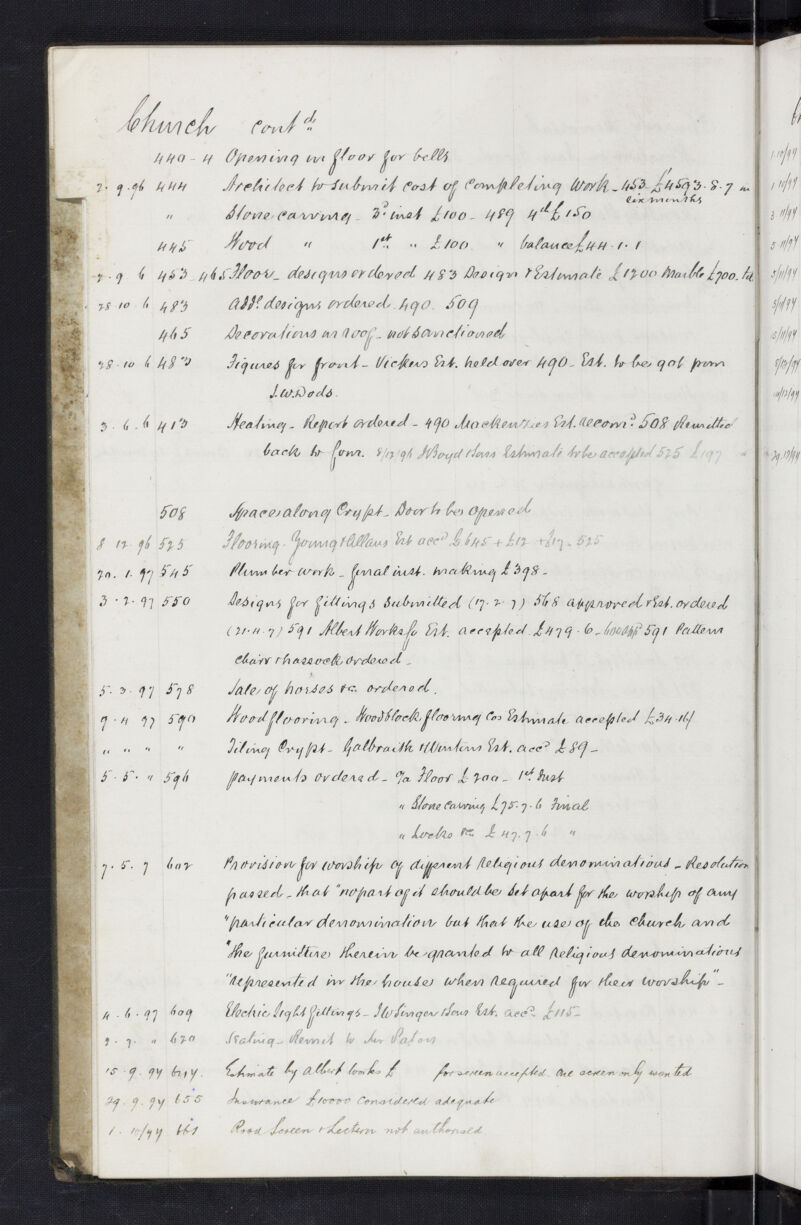 Church contd
440-4 Opening in floor for bells
2.9.96 444 Architect to submit cost of completing work - 453 £4593.8.7 in six months
" Stone carving - 3d inst £100 - 489 4th £150
445 Wood " 1st " £100 " balance £44.1.1
2.9.6 453-465 Floor - designs ordered 483 Design & Estimate £1200 Marble £700
28.10.6 483 addl. designs ordered. 490. 509
465 Decorations on roof - not sanctioned
28.10.6 483 Figures for front - Vickers Est. held over 490 - Est. to be got from
J.W. Dods.
3.6.6 413 Heating - Report ordered - 490 Mackenzies Est. recomd. 508 Remitted
back to Com. 8/12/96 J Boyd & Sons Estimate to be accepted 525 £197
508 Space along Crypt - Door to be opened
8 12 96 525 Flooring - Young & Allans Est accd £645 + £12 + £17 - 525
20.1.97 545 Plumber work - final inst. making £398 -
3.2.97 550 Designs for fittings submitted (17.2.7) 568 approved & Est. ordered
(21.4.7) 591 Albert Works Est. accepted £479.6 - 591 Pattern
chair & hassock ordered -
5.3.97 578 Sale of horses &c. ordered.
9.4 97 590 Wood flooring - Woodblock flooring Cos Estimate accepted £34.16/
" " " " Tiling Crypt - Galbraith & Wintons Est. accd £89 -
5.5. " 596 payments ordered - a/c Floor £200 - 1st Inst
" Stone carving £75.7.6 Final
" Locks &c £47.7.6 "
7.5.7 602 Provision for worship of different religious denominations - Resolution
passed - that "no part of it should be set apart for the worship of any
"particular denomination but that the use of the church and
"the furniture therein be granted to all religious denominations
"represented in the house when required for their worship" -
4.6.97 609 Electric light fittings - J W Singer & Sons Est. accd £115 -
2.7. " 620 Seating - Remit to Dr Paton
15.9.97 Estimate by Albert works £ for screen accepted one screen only wanted
29.9.97 655 Insurance £10000 considered adequate
1.10/97 661 Rood Screen & Lectern not authorised